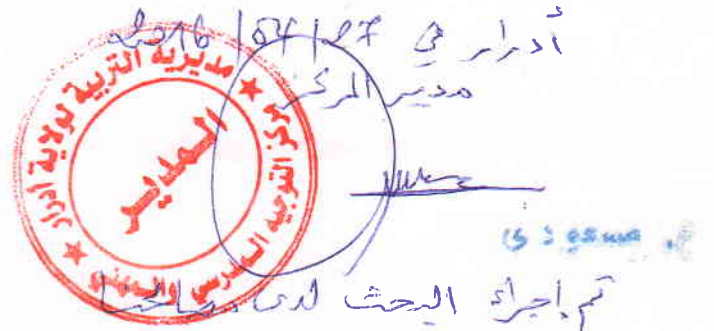 أدرار في 27/04/2016
مدير المركز
مديرية التربية لولاية أدرار
مركز التوجيه المدرسي والمهني
المدير
مسعودي
تم إجراء البحث لدى مصالحنا